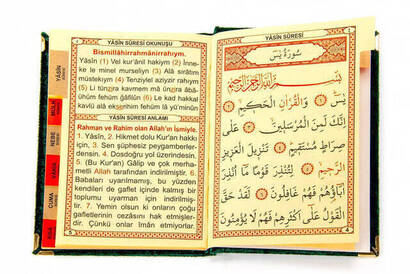 YÂSİN
MÜLK
NEBE
VAKIA
CUMA
YÂSİN SÛRESİ OKUNUŞU
Bismillâhirrahmânirrahıym.
Yâsîn (1) Vel kurânil hakiym (2) İnne-
ke le minel murseliyn (3) Alâ sırâtım
müstekıym (4) Tenziylel aziyzir rahıym
(5) Li tünzira kavmem mâ ünzira âbâ-
ühüm fehüm ğâfilûn (6) Le kad hakkal
kavlü alâ ekserihim fehüm lâ yü'minûn
YÂSİN SÛRESİ ANLAMI
Rahman ve Rahim olan Allah'ın İsmiyle.
1. Yâsîn, 2. Hikmet dolu Kur'an hakkı
için, 3. Sen şüphesiz peygamberler-
densin. 4. Dosdoğru yol üzerindesin.
5. (Bu Kur'an) Gâlip ve çok merha-
metli Allah tarafından indirilmiştir. 6.
Babaları uyarılmamış, bu yüzden
kendileri de gaflet içinde kalmış bir
toplumu uyarman için indirilmiş-
tir. 7. Yemin olsun ki onların çoğu
gafletlerinin cezasını hak etmişler-
dir. Çünkü onlar İman etmiyorlar.
YÂSİN SÛRESİ
سُورَةُ يٰسٓ
بِسْمِ اللّٰهِ الرَّحْمٰنِ الرَّحِيمِ
يٰسٓ ﴿١﴾ وَالْقُرْاٰنِ الْحَكِيمِ ﴿٢﴾
اِنَّكَ لَمِنَ الْمُرْسَلِينَ ﴿٣﴾ عَلٰى
صِرَاطٍ مُسْتَقِيمٍ ﴿٤﴾ تَنْزِيلَ الْعَزِيزِ
الرَّحِيمِ ﴿٥﴾ لِتُنْذِرَ قَوْمًا مَٓا اُنْذِرَ
اٰبَٓاؤُهُمْ فَهُمْ غَافِلُونَ ﴿٦﴾ لَقَدْ حَقَّ
الْقَوْلُ عَلٰٓى اَكْثَرِهِمْ فَهُمْ لَا يُؤْمِنُونَ
4